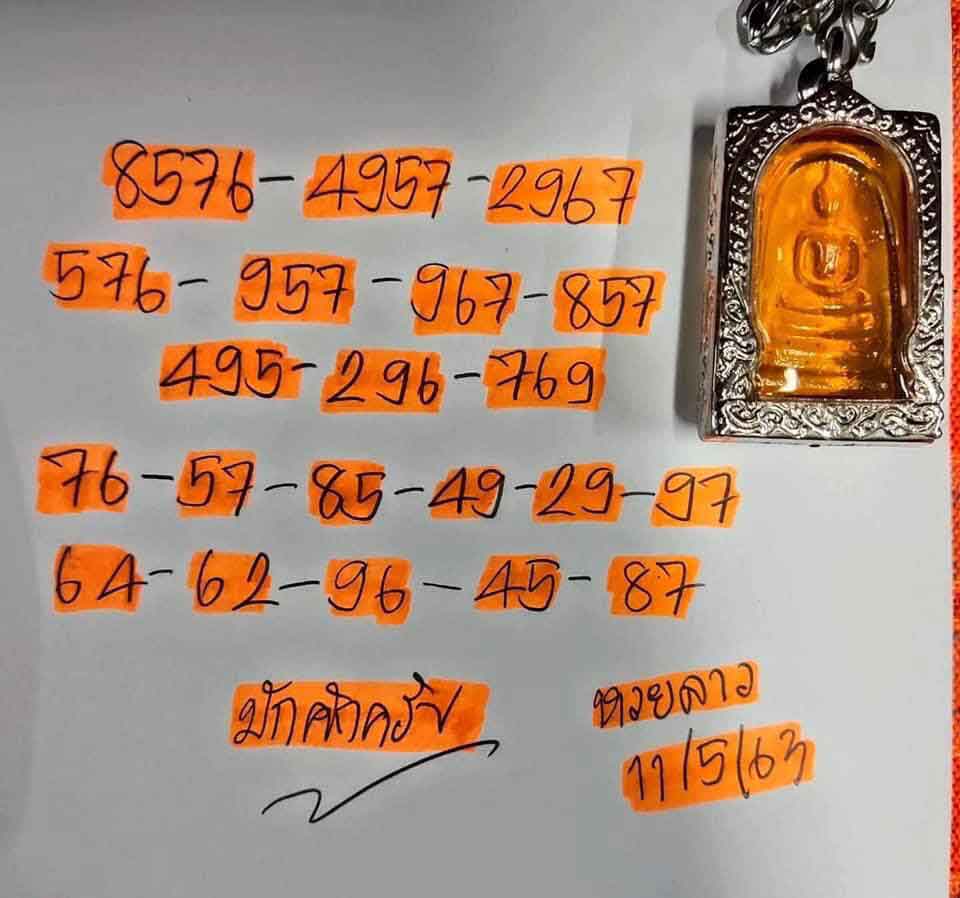 8576-4957-2967
576-957-967-857
495-296-769
76-57-85-49-29-97
64-62-96-45-87
หวยลาว
11/5/63